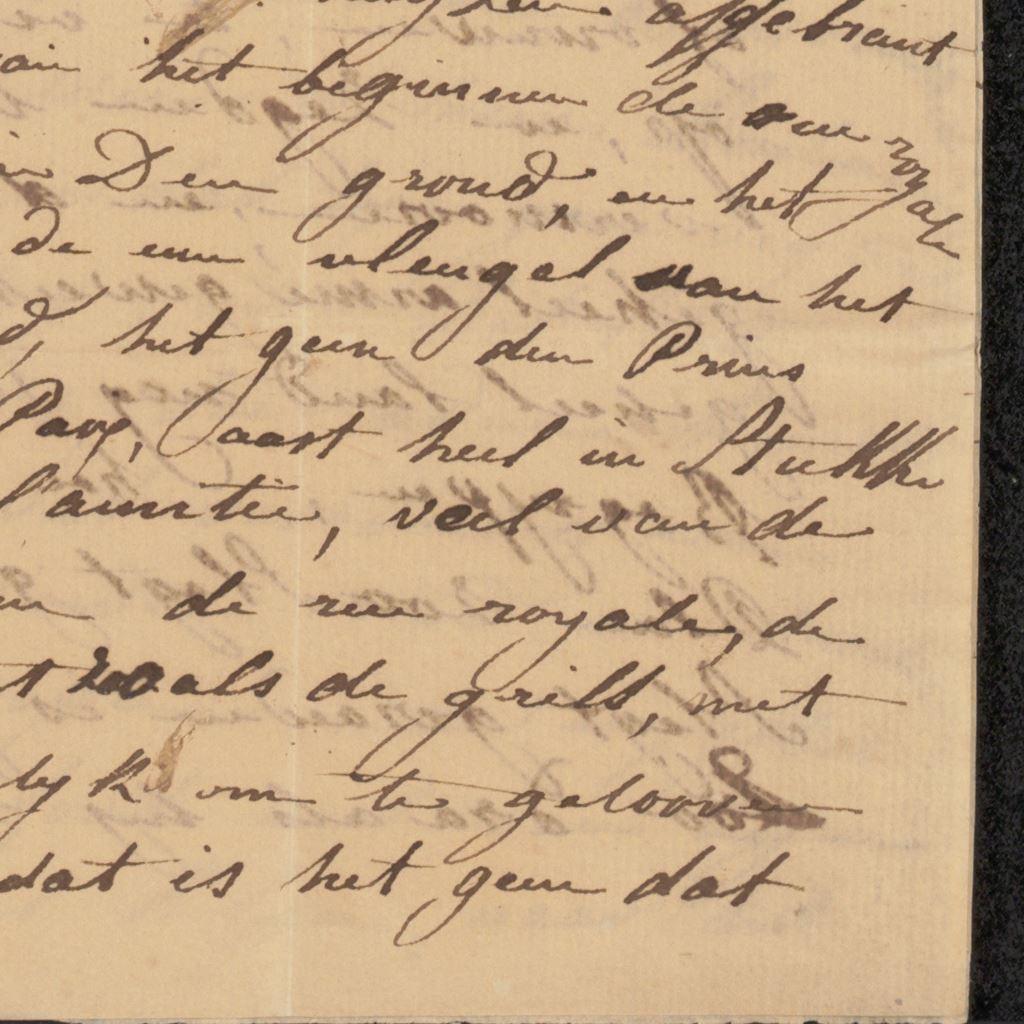 afgebrant
van het beginnen de rue royale
in Den grond, en het
de eene vleugel van het
d, het geen den Prins
Parq, Caart heel in Stukke
l'amitie, veel van de
de rue royale, de
t zooals de grill, met
lyk om te geloove
dat is het geen dat